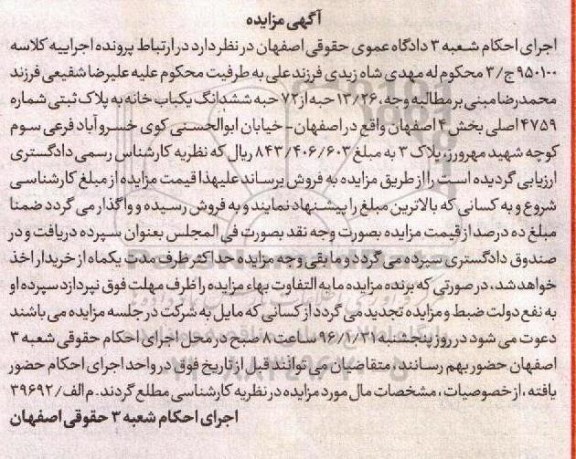 آگهی مزایده
اجرای احکام شعبه ۳ دادگاه عمومی حقوقی اصفهان در نظر دارد در ارتباط پرونده اجراییه کلاسه
۹۵۰۱۰۰ج/۳ محکوم له مهدی شاه زیدی فرزند علی به طرفیت محکوم علیه علیرضا شفیعی فرزند
محمدرضا مبنی بر مطالبه وجه، ۱۳/۲۶ حبه از ۷۲ حبه ششدانگ یکباب خانه به پلاک ثبتی شماره
۴۷۵۹ اصلی بخش ۴ اصفهان واقع در اصفهان - خیابان ابوالحسنی کوی خسرو آباد فرعی سوم
کوچه شهید مهرورز، پلاک ۳ به مبلغ ۸۴۳/۴۰۶/۶۰۳ ریال که نظریه کارشناس رسمی دادگستری
ارزیابی گردیده است را از طریق مزایده به فروش برساند علیهذا قیمت مزایده از مبلغ کارشناسی
شروع و به کسانی که بالاترین مبلغ را پیشنهاد نمایند و به فروش رسیده و واگذار می گردد ضمنا
مبلغ ده درصد از قیمت مزایده بصورت وجه نقد بصورت فی المجلس بعنوان سپرده دریافت و در
صندوق دادگستری سپرده می گردد و مابقی وجه مزایده حداکثر ظرف مدت یکماه از خریدار اخذ
خواهد شد، در صورتی که برنده مزایده ما به التفاوت بهاء مزایده را ظرف مهلت فوق نپردازد سپرده او
به نفع دولت ضبط و مزایده تجدید می گردد از کسانی که مایل به شرکت در جلسه مزایده می باشند
دعوت می شود در روز پنجشنبه ۹۶/۱/۳۱ ساعت ۸ صبح در محل اجرای احکام حقوقی شعبه ۳
اصفهان حضور بهم رسانند، متقاضیان می توانند قبل از تاریخ فوق در واحد اجرای احکام حضور
یافته، از خصوصیات، مشخصات مال مورد مزایده در نظریه کارشناسی مطلع گردند. م الف/ ۳۹۶۹۲
اجرای احکام شعبه ۳ حقوقی اصفهان